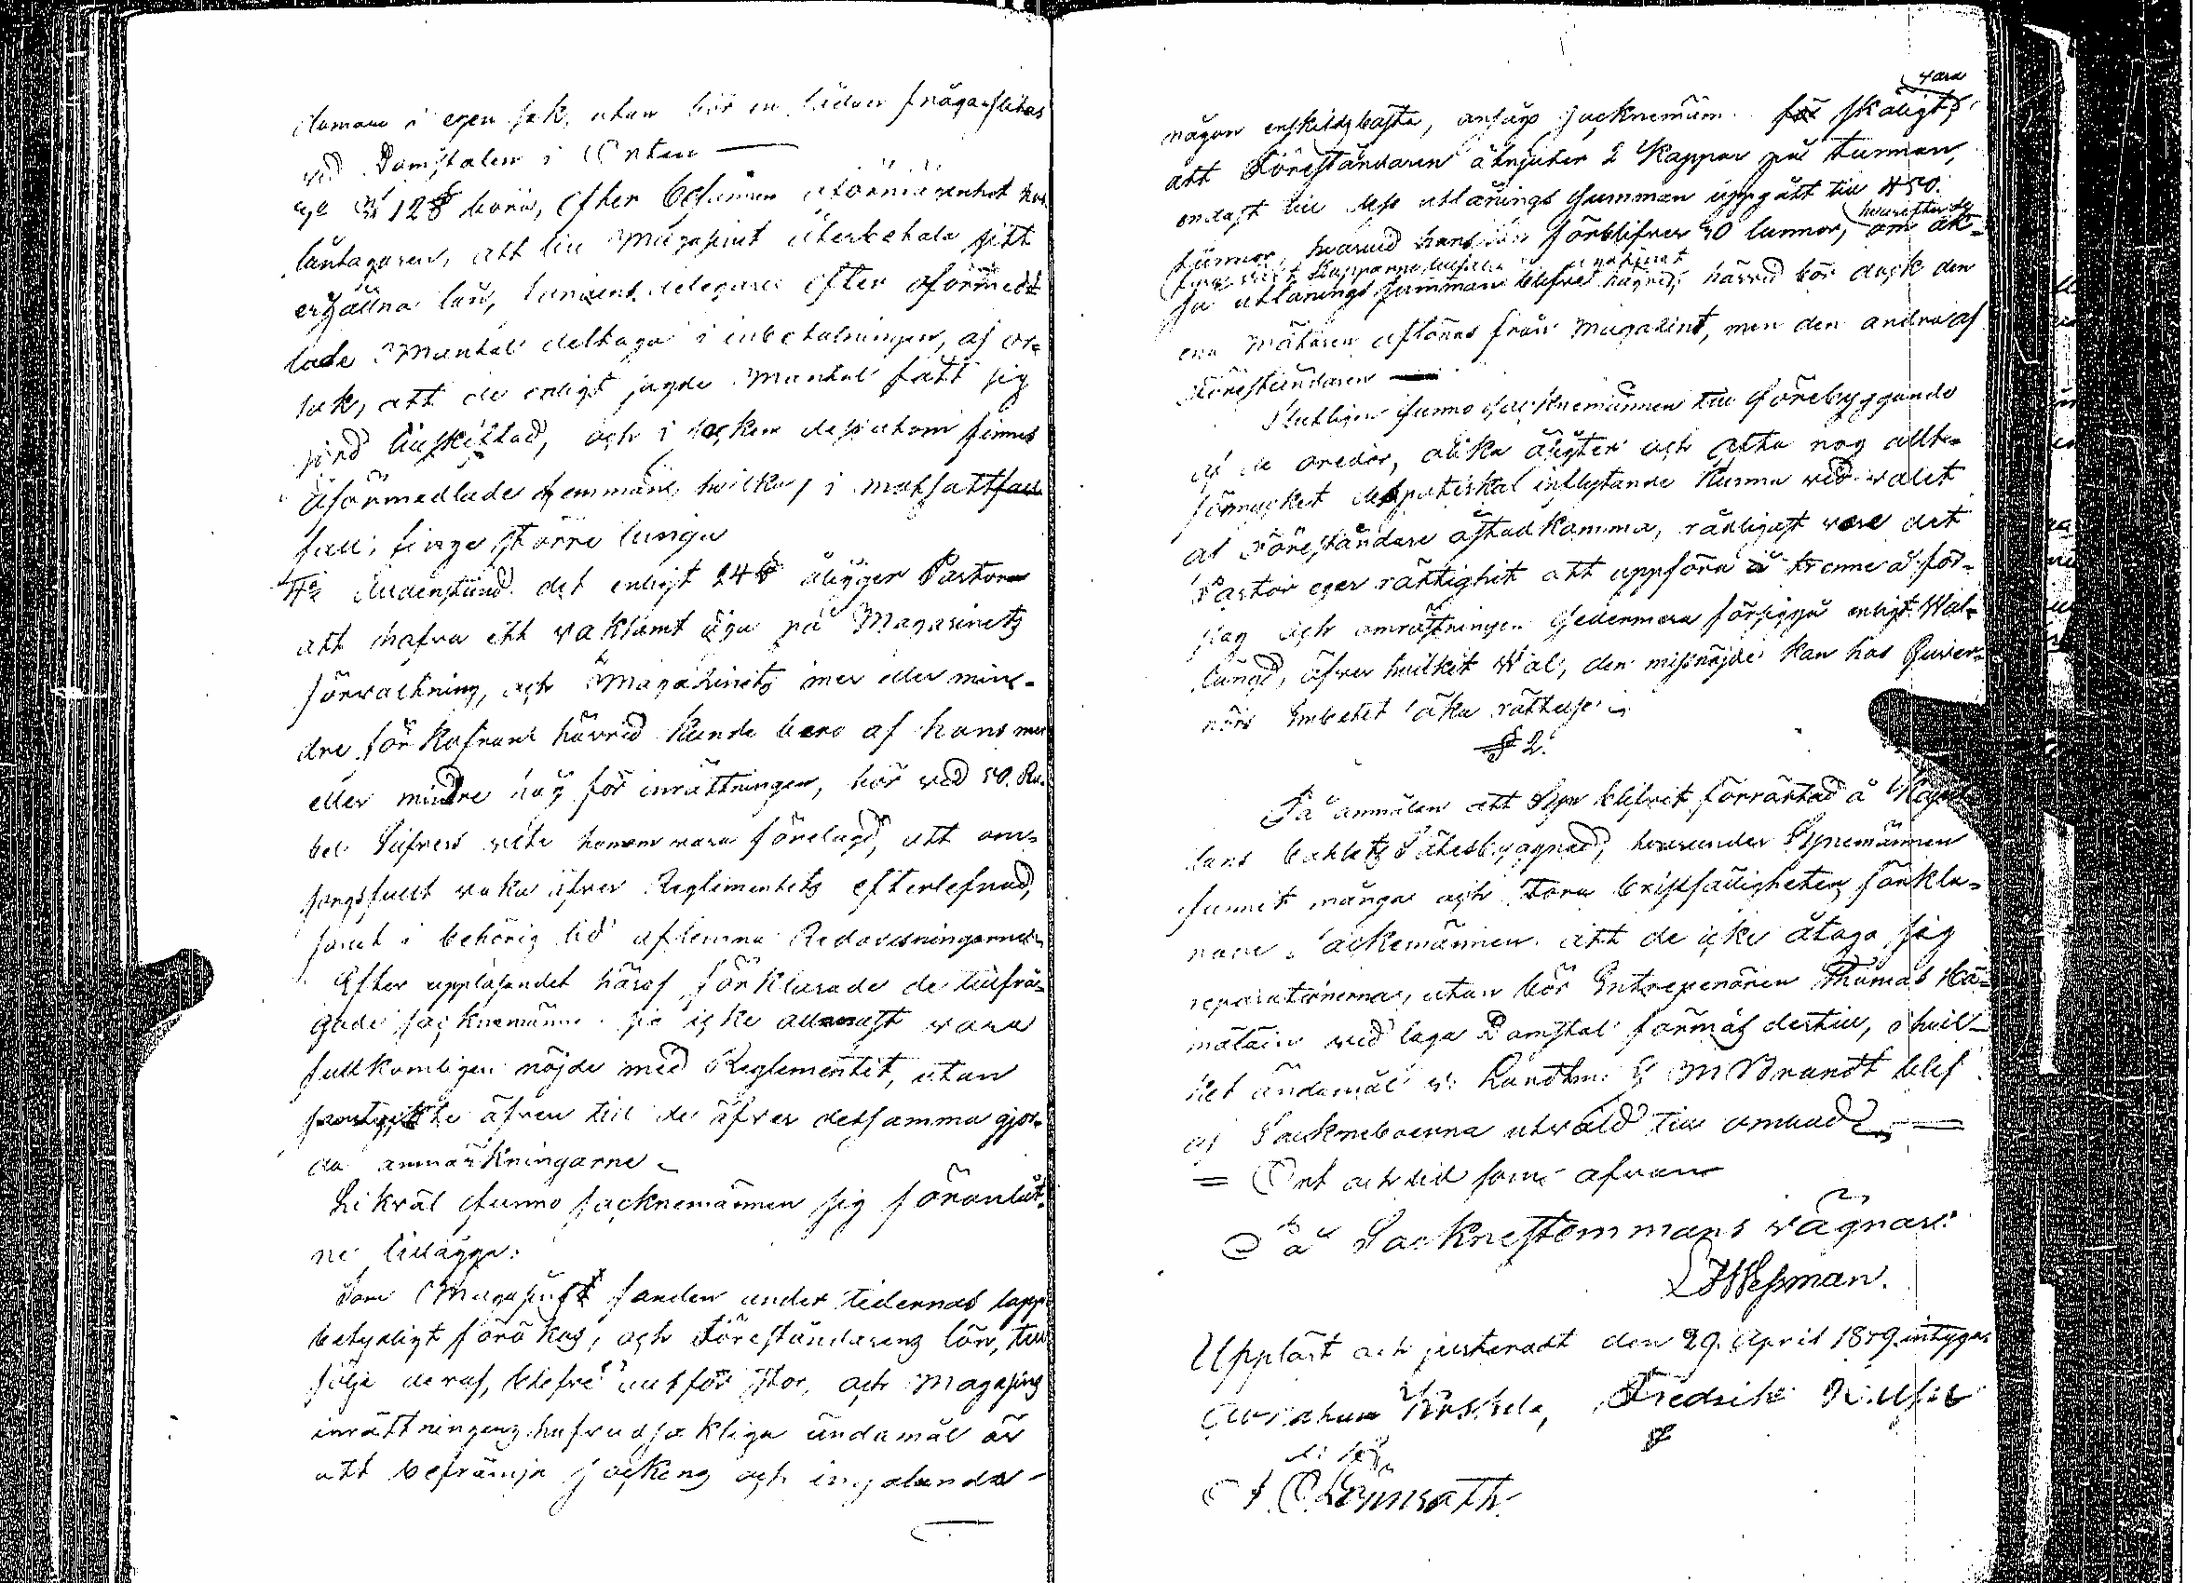 domare i egen sak, utan bör en sådan fråga slitas
vid Domstolen i Orten
12 § böra, efter befunnen oförmögenhet hos
låntagaren, att till Magasinet återbetala sitt
erhållna lån, Lånens delegare efter oförmed-
lade Mantal deltaga i inbetalningen, af or-
sak, att de enligt sagde Mantal fått sig
säd tillskiftad, och i socken dessutom finnes
oförmedlade hemman, hvilka, i motsatt
fall, finge större tunga
Medenstund det enligt 24 § åligger Pastorn
att hafva ett vaksamt öga på Magasinets
förvaltning, och Magasinets mer eller min-
dre förkofran härvid kunde bero af hans mer
eller mindre håg för inrättningen, bör vid 50 Ru-
bel Silfvers vite honom vara förelagd, att om-
sorgsfullt vaka öfver Reglementets efterlefnad,
samt i behörig tid aflemna Redovisningarne.
Efter uppläsandet häraf förklarade de tillfrå-
gade socknemännen sig icke allenast vara
fullkomligen nöjde med Reglementet, utan
samtyckte äfven till de öfver detsamma gjor-
da anmärkningarne
Likväl funno socknemännen sig föranlåt-
ne tillägga:
Som Magasins fonden under tidernas lopp
betydligt förökas, och Föreståndarens lön, till
följe deraf, blefve alltför stor, och Magasins
inrättningens hufvudsakliga ändamål är
att befrämja sockens och ingalunda
någon enskilds bästa, ansågo socknemännen skäligt vara
att Föreståndaren åtnjuter 2 Kappar på tunnan,
endast till dess utlånings Summan uppgått till 450
tunnor, hvarvid hans lön förblifver 30 tunnor, om ock-
så utlånings summan blefve högre; härvid bör dock den
ena Mätaren aflönas från Magasinet, men den andra af
Föreståndaren
Slutligen funno Socknemännen till förebyggande
af de oredor, olika åsigter och ofta nog allt-
för mycket despotiskt inflytande kunna vid valet
af Föreståndare åstadkomma, rådligast vara det
Pastor eger rättighet att uppföra trenne å för-
slag och omröstningen sedermera försiggå enligt Wal-
längd, öfver hvilket Wal, den missnöjde kan hos Guver-
nörs Embetet söka rättelse
§ 2.
På anmälan att Syn blifvit förrättad å Kapel-
lans bohlets Sätesbyggnad, hvarunder Synemännen
funnit många och stora bristfälligheter, förkla-
rade Sockemännen att de icke åtaga sig
reparationerna, utan bör Entreprenören Thomas
vid laga Domstol förmås dertill, i hvil-
ket ändamål v. Landtm. G M Brandt blef
af Sockneboerna utvald till ombud
Ort och tid som ofvan
På Socknestemmans vägnar:
Wessman.
Uppläst och justeradt den 29 April 1859 intygar
Abraham Koskela, Fredrik
Lönnroth.